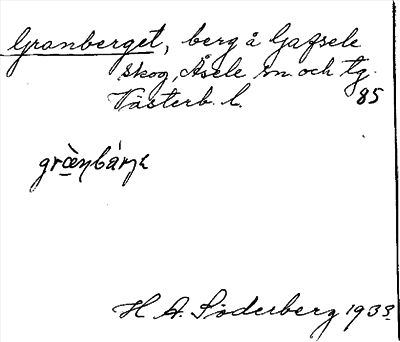 Granberget, berg å Gafsele
skog, Åsele sn. och tg.
Västerb. l. 85
H A. Söderberg 1933